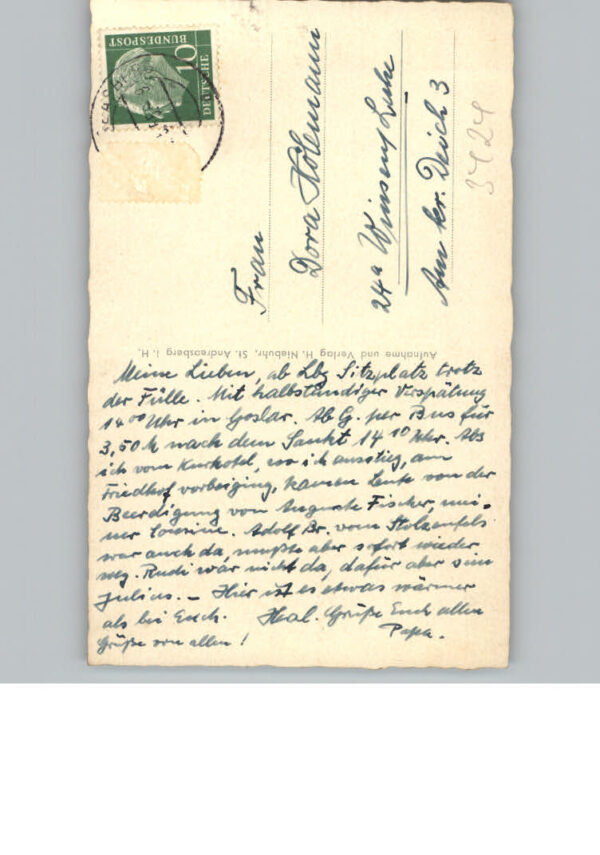 Meine Lieben, ab Lbg Sitzplatz trotz
der Fülle. Mit halbstündiger Verspätung
14⁰⁰ Uhr in Goslar. Ab G. per Bus für
3,50 M nach dem Sankt 14¹⁰ Uhr. Als
ich vom Kurhotel, wo ich ausstieg, am
Friedhof vorbeiging, kamen Leute von der
Beerdigung von Auguste Fischer, mei-
ner Cousine. Adolf Br. vom Stolzenfels
war auch da, mußte aber sofort wieder
weg. Rudi war nicht da, dafür aber sein
Julius. – Hier ist es etwas wärmer
als bei Euch. Herzl. Grüße Euch allen
Grüße von allen! Papa.
Aufnahme und Verlag H. Niebuhr, St. Andreasberg i. H.
Frau
Dora
24a Winsen/Luhe
Am kr. Deich 3
3424
DEUTSCHE
BUNDESPOST
10